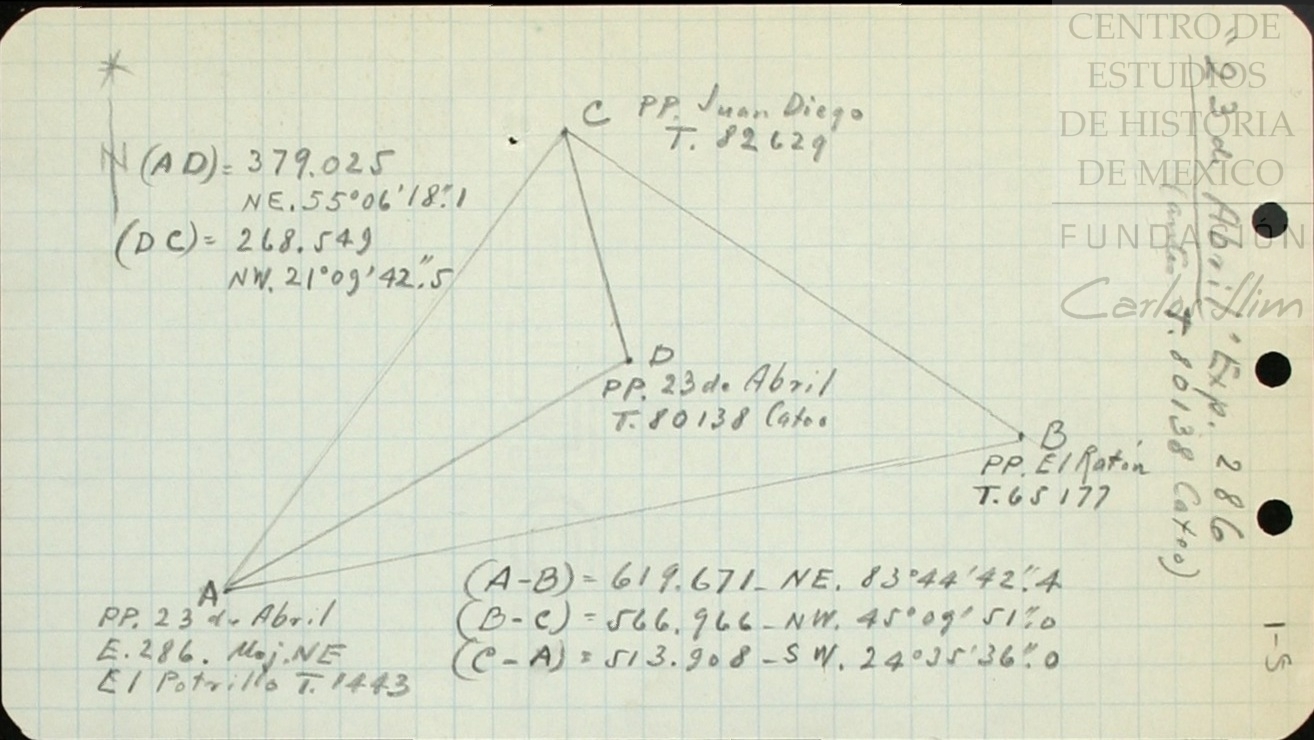 C PP. Juan Diego
T. 82629
N
(AD)= 379.025
NE. 55°06'18."1
(DC)= 268.549
NW. 21°09'42."5
D
PP. 23 de Abril
T. 80138 Catoo
B
PP. El Ratón
T. 65177
A
PP. 23 de Abril
E. 286. Moj. NE
El Potrillo T. 1443
(A-B) = 619.671_ NE. 83°44'42."4
(B-C) = 566.966 _ NW. 45°09'51."0
(C-A) = 513.908 - SW. 24°35'36."0
"23 de Abril" Exp. 286
T. 80138 Catoo)
1-5
CENTRO DE
ESTUDIOS
DE HISTORIA
DE MEXICO
FUNDACIÓN
Carlos Slim